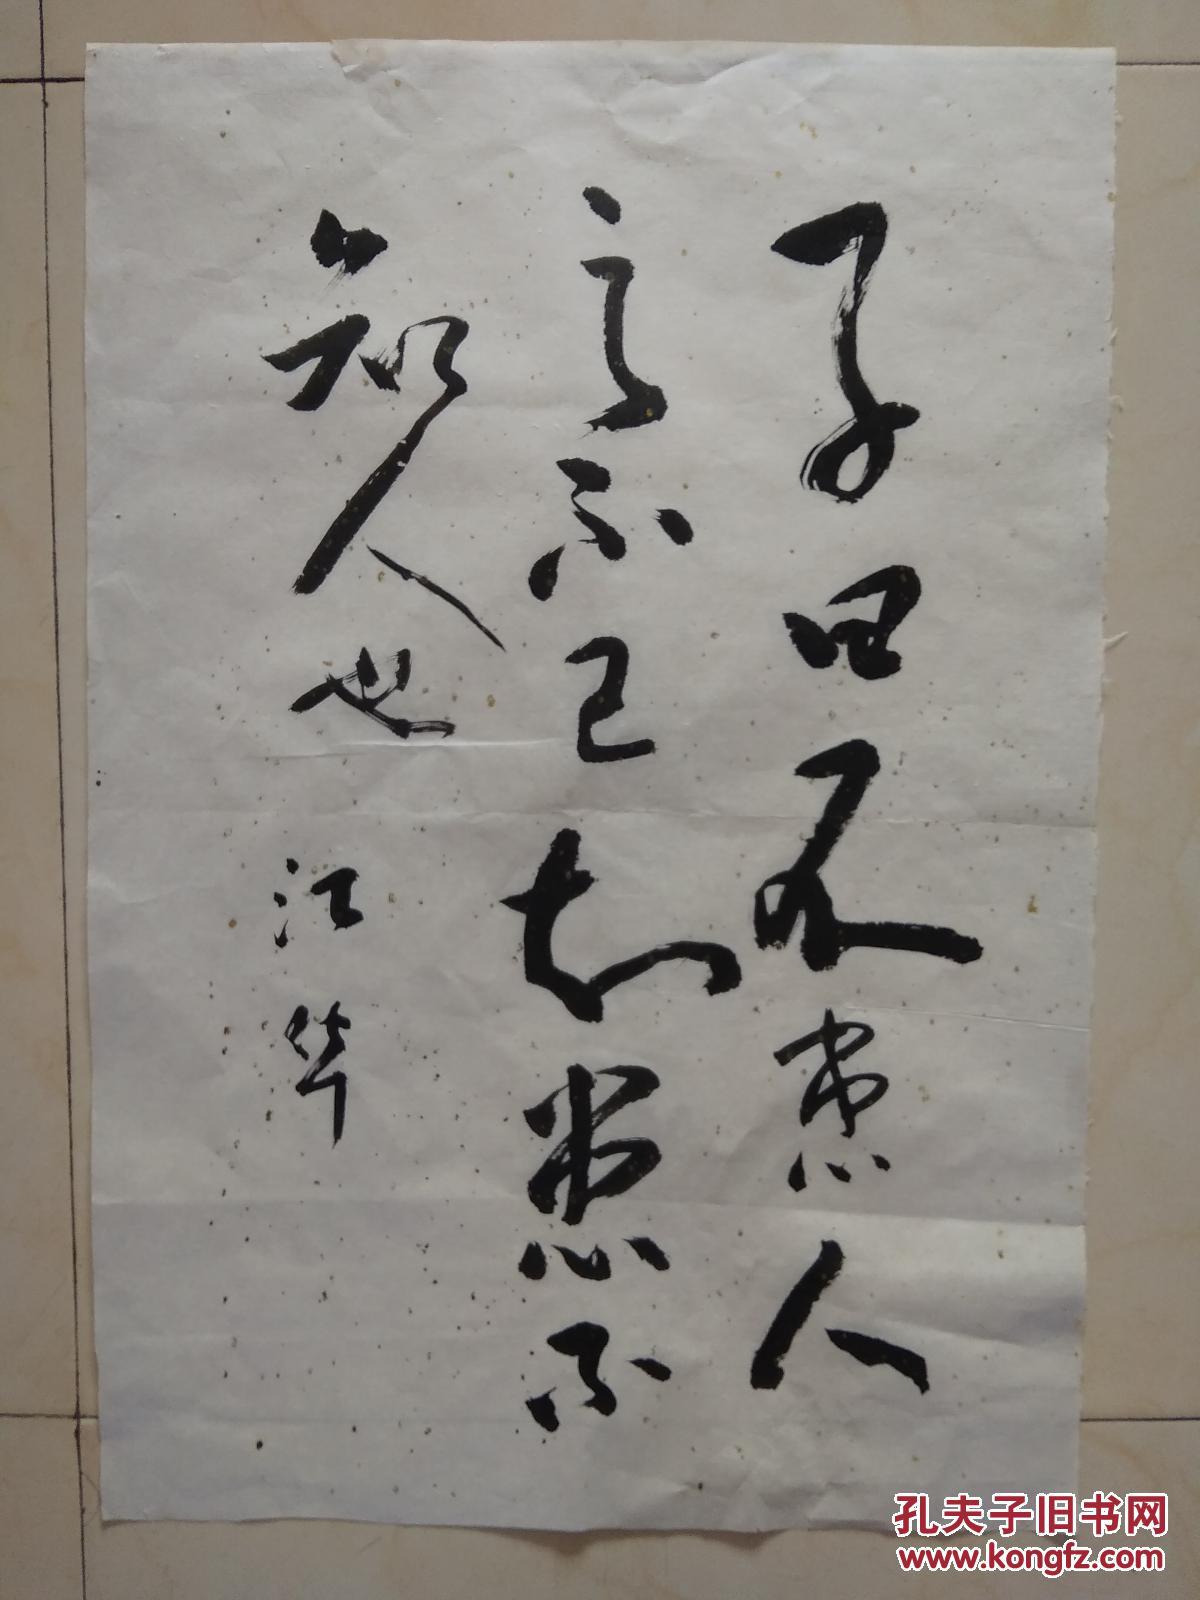 子曰不患人
之不己知患不
知人也
江华
孔夫子旧书网
www.kongfz.com